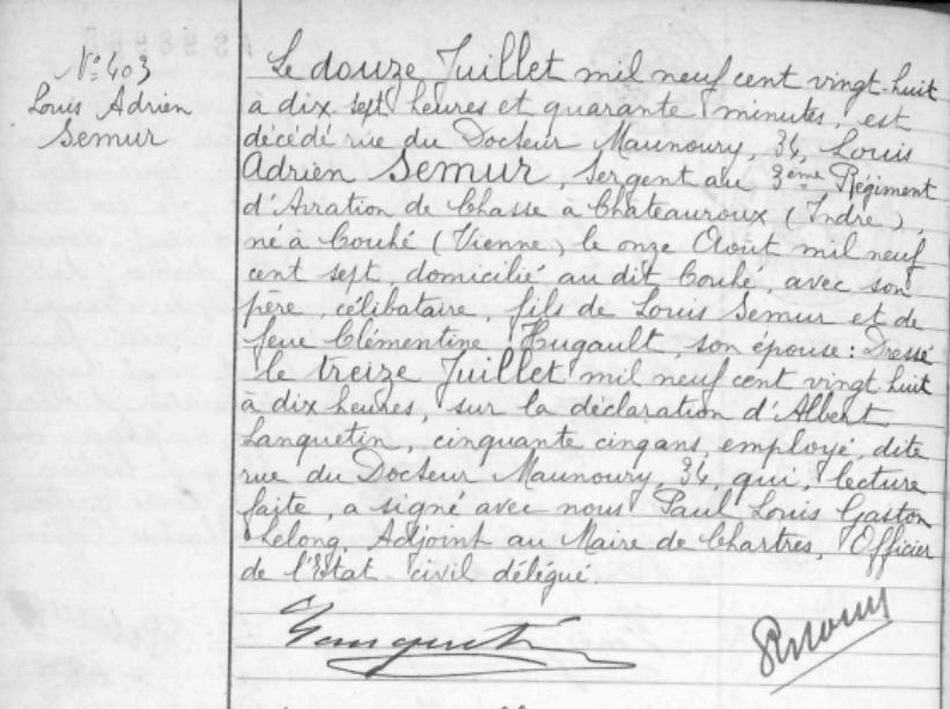 N° 403
Louis Adrien
Semur
Le douze Juillet mil neuf cent vingt-huit
à dix sept heures et quarante minutes, est
décédé rue du Docteur Maunoury, 34, Louis
Adrien Semur, Sergent au 3ème Régiment
d'Aviation de Chasse à Châteauroux (Indre),
né à Couhé (Vienne), le onze Août mil neuf
cent sept, domicilié au dit Couhé, avec son
père, célibataire, fils de Louis Semur et de
feue Clémentine Hugault, son épouse : Dressé
le treize Juillet mil neuf cent vingt huit
à dix heures, sur la déclaration d'Albert
Lanquetin, cinquante cinq ans, employé, dite
rue du Docteur Maunoury, 34, qui, lecture
faite, a signé avec nous Paul Louis Gaston
Lelong, Adjoint au Maire de Chartres, Officier
de l'Etat civil délégué.
Lanquetin